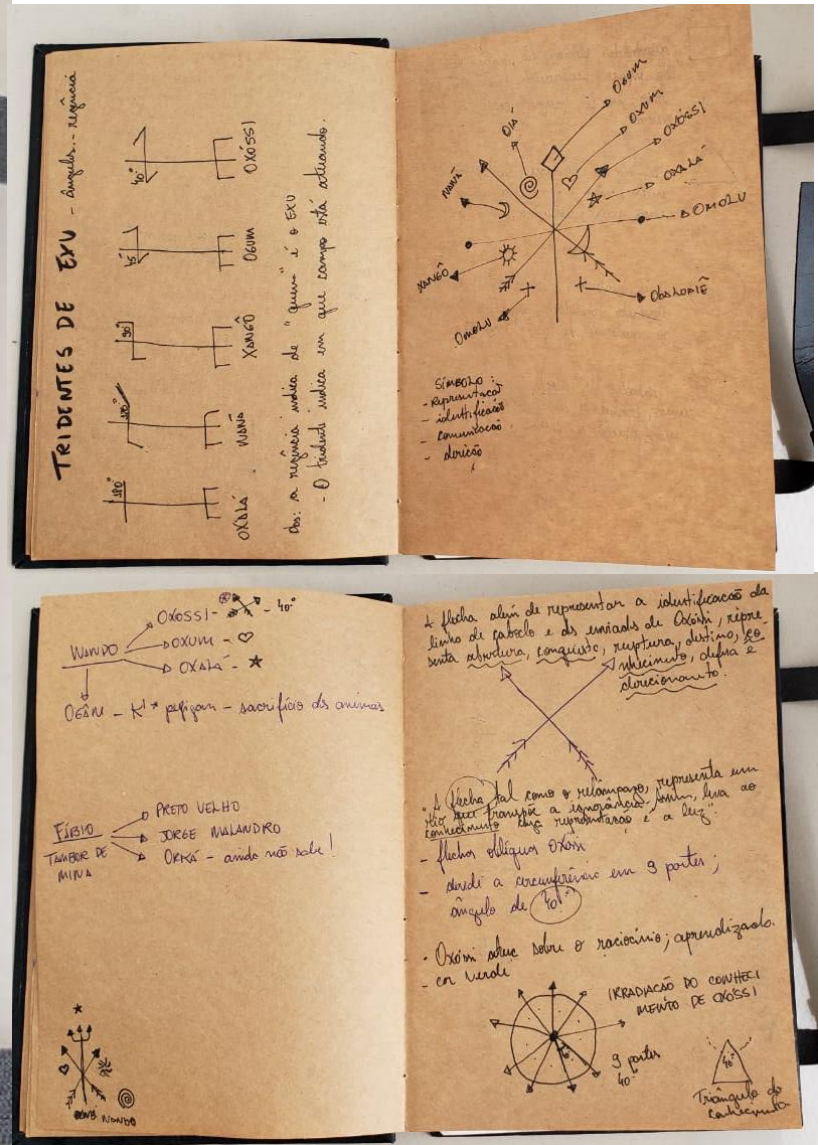 TRIDENTES DE EXU - ângulos - regência
180°
90°
45°
40°
OXALÁ
NANÃ
XANGÔ
OGUM
OXÓSSI
Obs: a regência indica de "quem" é o EXU
- O tridente indica em que campo está atuando.
OGUM
OXUM
OXÓSSI
OXALÁ
OMOLU
OBALUAIÊ
OIÁ
NANÃ
XANGÔ
OMOLU
SÍMBOLO:
- representação
- identificação
- comunicação
- direção
NANDO
OXOSSI - - 40°
OXUM -
OXALÁ -
OGÃM - pegigan - sacrifício ds animais
FÁBIO
TAMBOR DE
MINA
PRETO VELHO
JORGE MALANDRO
- ainda não sabe!
NANDO
A flecha além de representar a identificação da
linha de caboclo e ds enviads de Oxóssi, repre-
senta abertura, conquista, ruptura, destino, co-
nhecimento, defesa e
direcionamento.
"A flecha, tal como o relâmpago, representa um
raio que transpõe a ignorância. Assim, leva ao
conhecimento cuja representação é a luz".
- flechas oblíquas Oxóssi
- divide a circunferência em 9 partes;
ângulo de 40°
- Oxóssi atua sobre o raciocínio; aprendizado.
- cor verde
IRRADIAÇÃO DO CONHECI
MENTO DE OXÓSSI
9 partes
40°
40°
Triângulo do
conhecimento